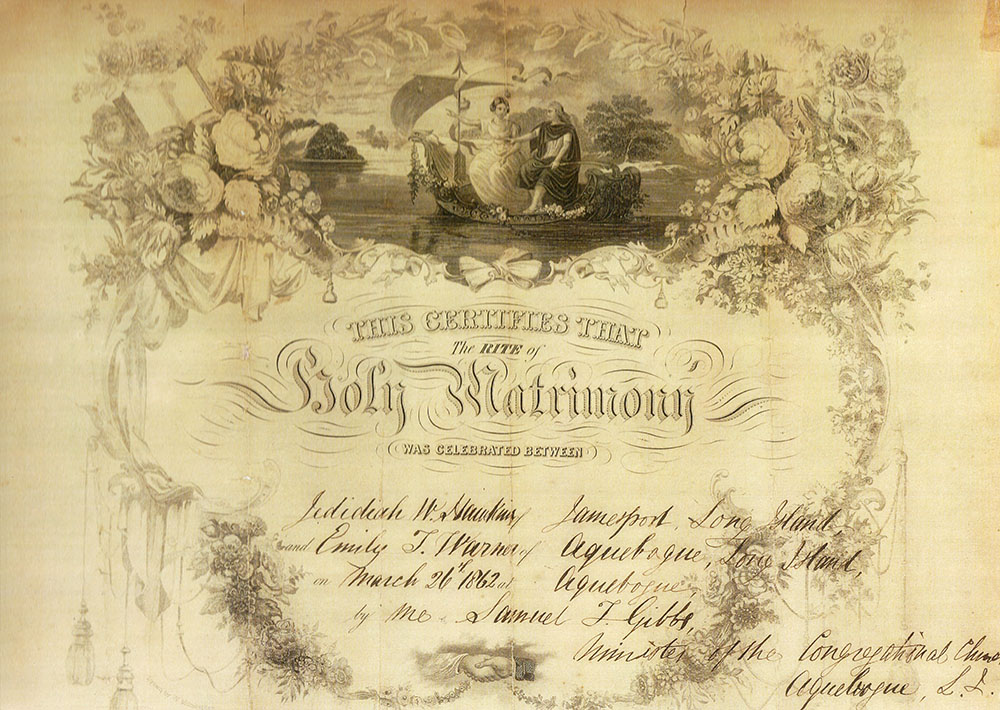 THIS CERTIFIES THAT
The RITE of
Holy Matrimony
WAS CELEBRATED BETWEEN
Jedidiah W. Hawkins of Jamesport, Long Island,
and Emily T. Warner of Aquebogue, Long Island,
on March 26th 1862 at Aquebogue,
by me Samuel T. Gibbs,
Minister of the Congregational
Aquebogue, L. I.